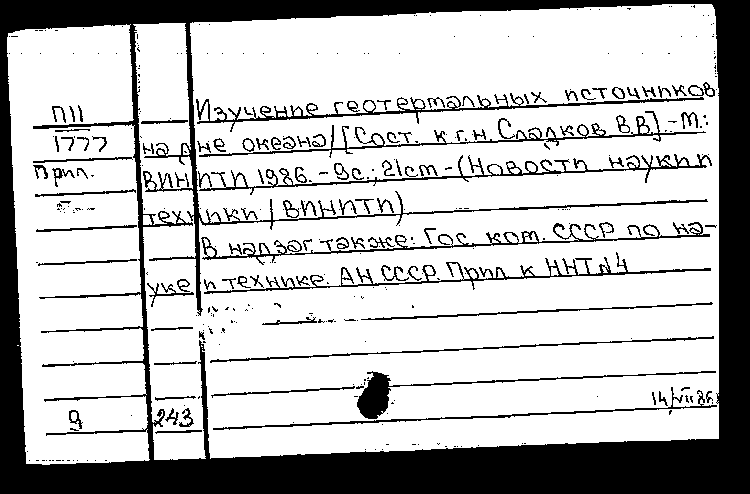 П11
1777
Прил.
Изучение геотермальных источников
на дне океана/[Сост. к.г.н. Сладков В.В.].-М.:
ВИНИТИ, 1986.-9с.; 21см-(Новости науки и
техники / ВИНИТИ)
В надзаг. также: Гос. ком. СССР по на-
уке и технике. АН СССР. Прил. к ННТ №4
9 243
14/VII 86